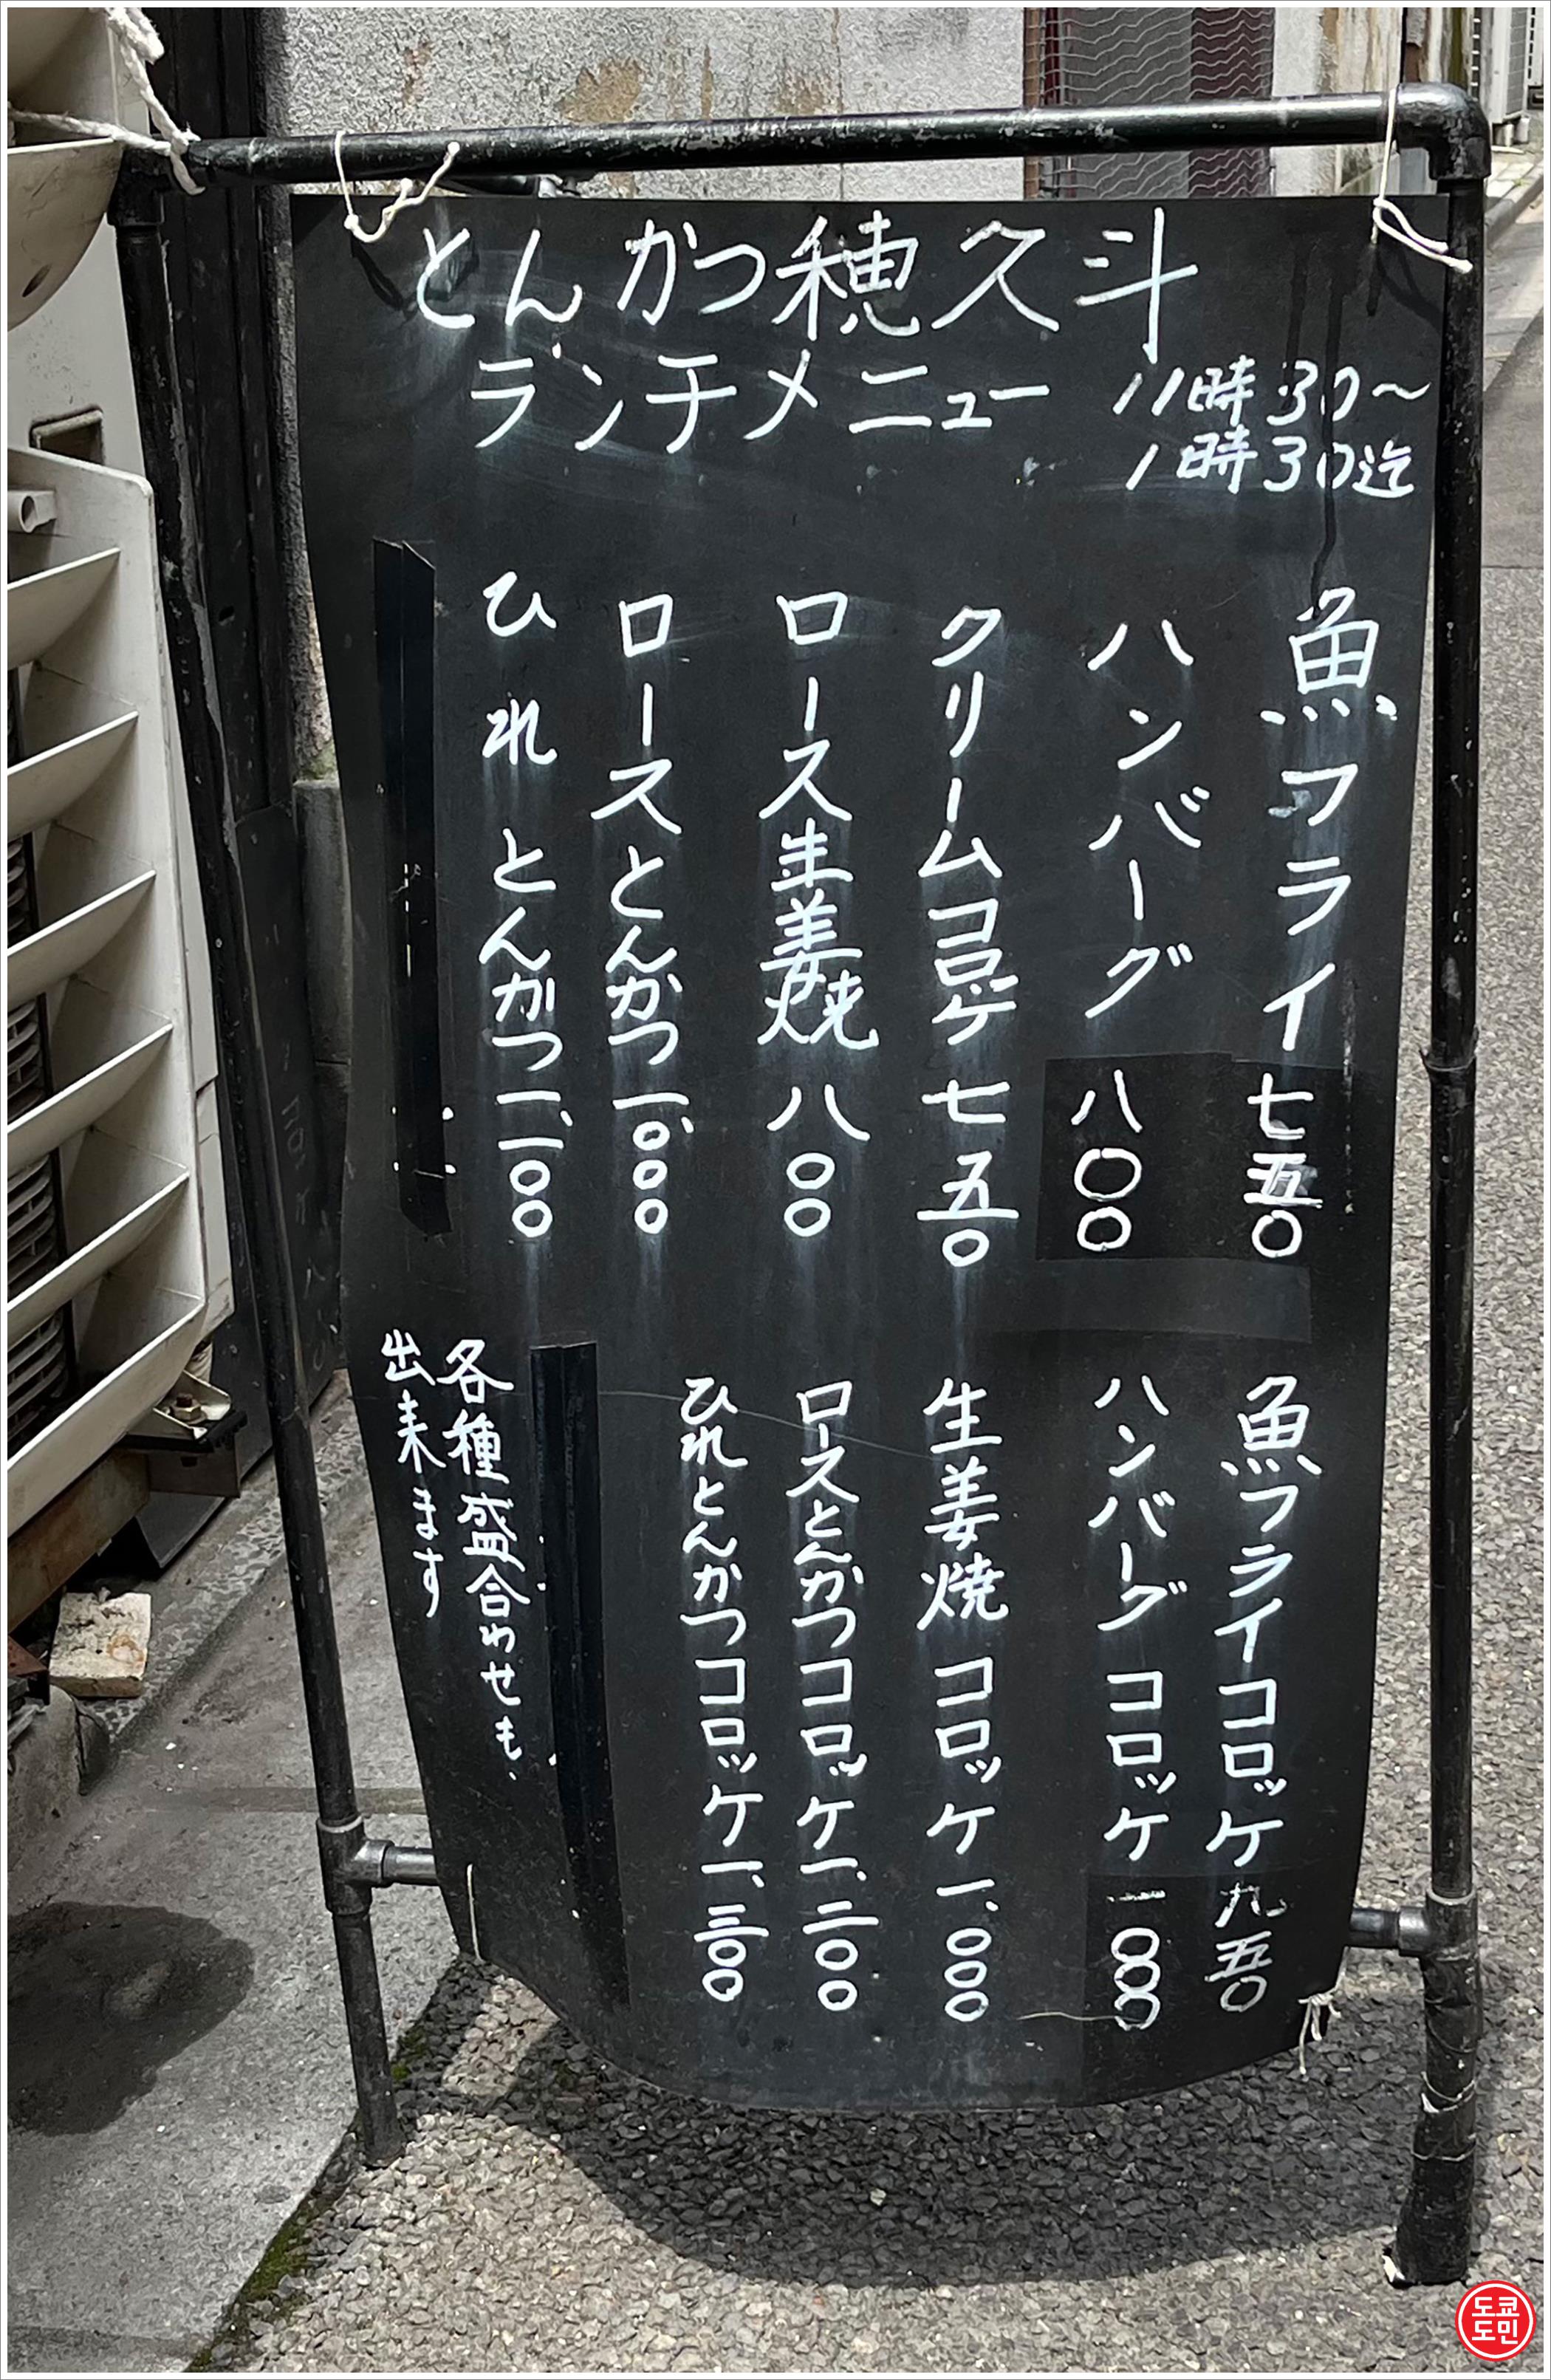 とんかつ穂久斗
ランチメニュー
11時30〜
1時30迄
魚フライ 七五〇
ハンバーグ 八〇〇
クリームコロッケ 七五〇
ロース生姜焼 八〇〇
ロースとんかつ 一、〇〇〇
ひれとんかつ 一、一〇〇
魚フライコロッケ 九五〇
ハンバーグコロッケ 一〇〇〇
生姜焼コロッケ 一、〇〇〇
ロースとんかつコロッケ 一、二〇〇
ひれとんかつコロッケ 一、三〇〇
各種盛合わせも、
出来ます
도쿄
도민